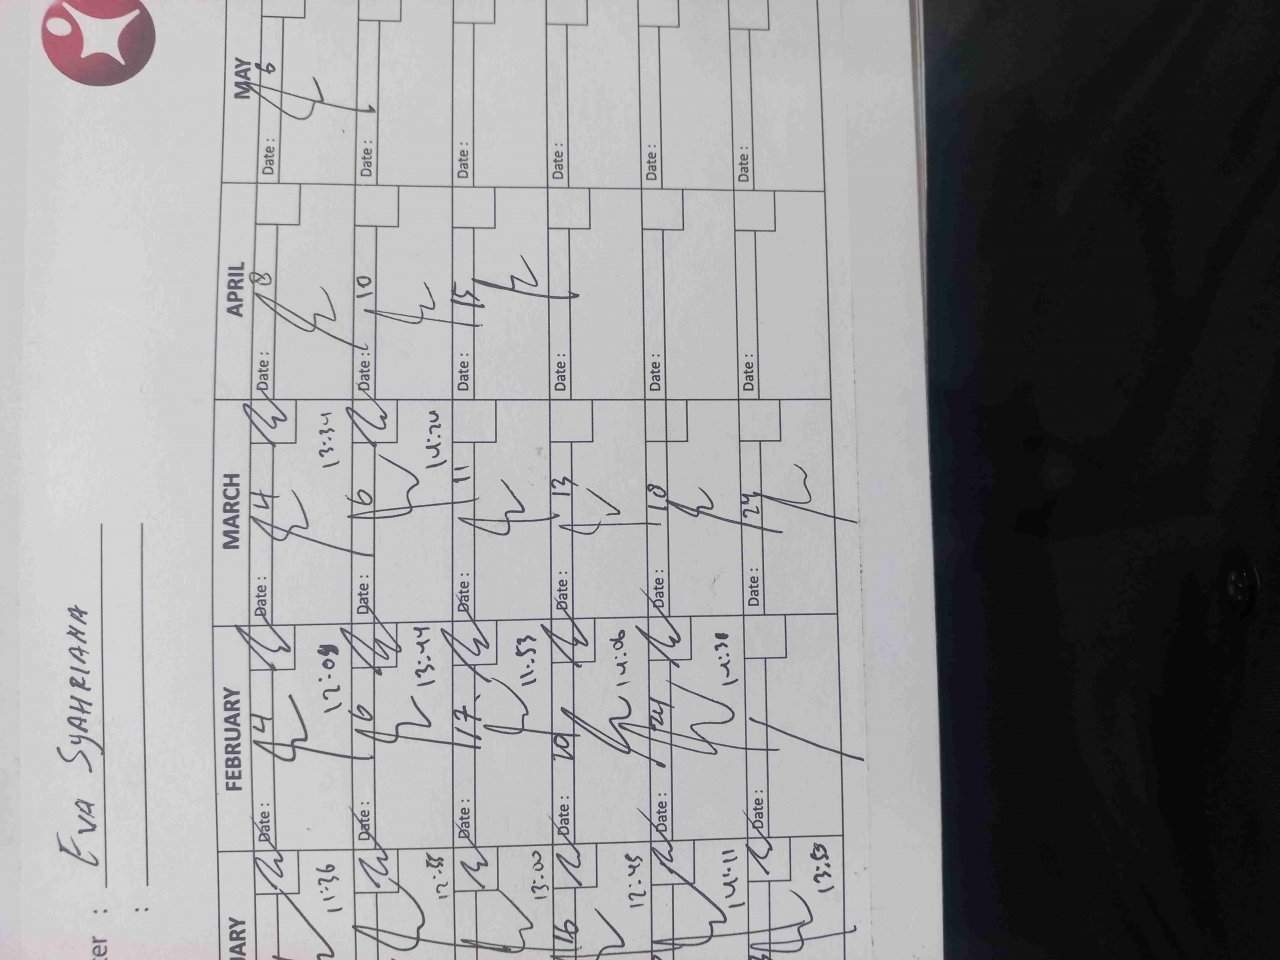 ter : EVA SYAHRIANA
:
UARY FEBRUARY MARCH APRIL MAY
11:36 Date : 4 12:09 Date : 4 13:34 Date : 8 Date : 6
12:55 Date : 6 13:44 Date : 6 14:24 Date : 10 Date :
13:00 Date : 17 11:53 Date : 11 Date : 15 Date :
16 12:45 Date : 19 14:06 Date : 13 Date : Date :
14:11 Date : 24 14:31 Date : 18 Date : Date :
13:53 Date : Date : 24 Date : Date :